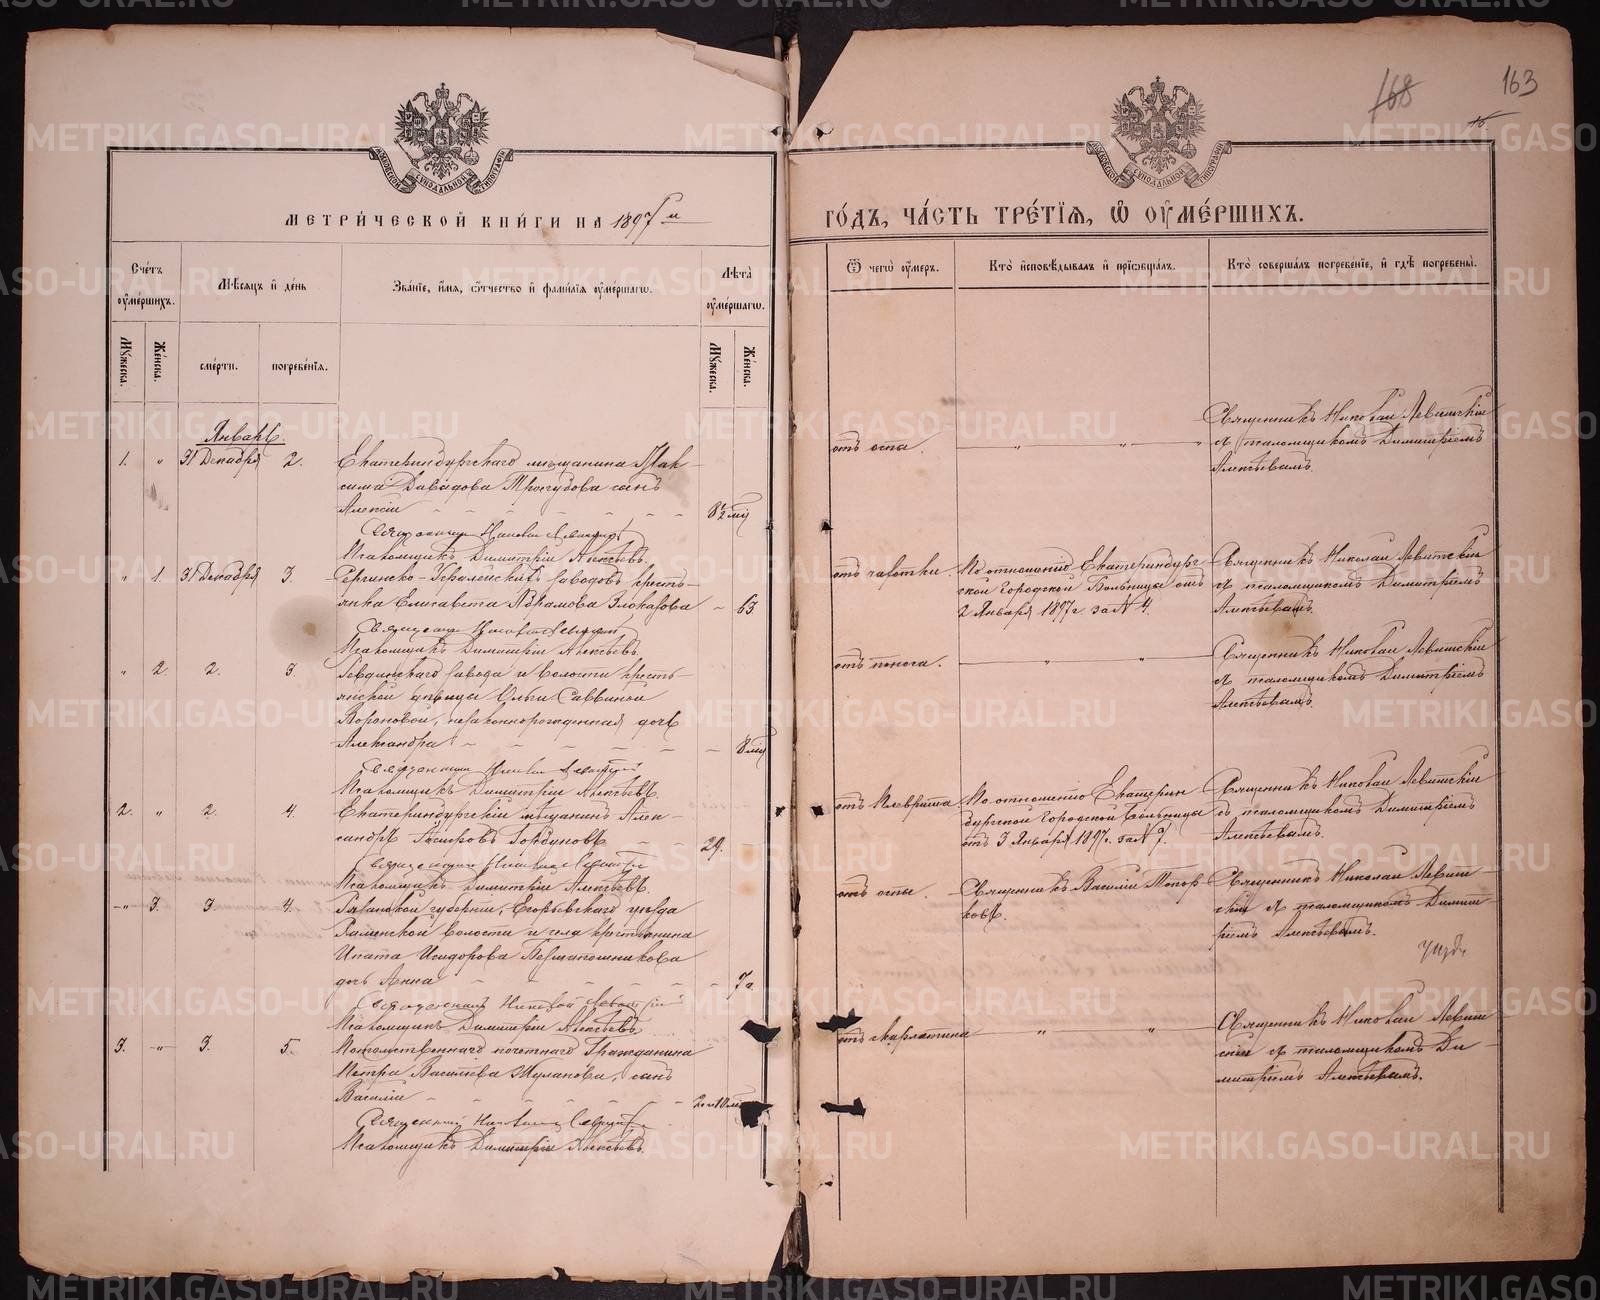 163
168
15
МОСКОВСКОЙ СѴНОДАЛЬНОЙ ТИПОГРАФІИ
МОСКОВСКОЙ СѴНОДАЛЬНОЙ ТИПОГРАФІИ
МЕТРИ́ЧЕСКОЙ КНИ́ГИ НА 1897й
ГО́ДЪ, ЧА́СТЬ ТРЕ́ТІѦ, Ѽ ОУМЕ́РШИХЪ.
Сче́тъ оумершихъ.
Мѣсяцъ и де́нь
Зва́ніе, и́мя, ѻтчество и фами́лія оуме́ршагѡ.
Лѣта̀ оуме́ршагѡ.
Ѿ чегѡ̀ оу́меръ.
Кто̀ исповѣ́дывалъ и пріѡбща́лъ.
Кто̀ соверша́лъ погребе́ніе, и гдѣ̀ погребены̀.
Мꙋжеска.
Же́нска.
сме́рти.
погребе́нія.
Мꙋжеска.
Же́нска.
Январь.
1. " 31 Декабря 2. Екатеринбургскаго мѣщанина Мак-
сима Давидова сынъ
Алексій 8½ мѣс
отъ оспы.
Священникъ Николай Левитскій
съ псаломщикомъ Димитріемъ
Алексѣевымъ.
Священникъ Николай Левитскій
Псаломщикъ Димитрій Алексѣевъ.
" 1. 31 Декабря 3. Сергинско-Уфалейскихъ заводовъ кресть-
янка Елисавета Абрамова Злоказова 63
отъ чахотки.
По отношенію Екатеринбург-
ской Городской Больницы отъ
2 Января 1897 г. за № 4.
Священникъ Николай Левитскій
съ псаломщикомъ Димитріемъ
Алексѣевымъ.
Священникъ Николай Левитскій
Псаломщикъ Димитрій Алексѣевъ.
" 2. 2. 3. Ревдинскаго завода и волости кресть-
янской дѣвицы Ольги Саввиной
Вороновой, незаконнорожденная дочь
Александра 8 мѣс
отъ поноса.
Священникъ Николай Левитскій
съ псаломщикомъ Димитріемъ
Алексѣевымъ.
Священникъ Николай Левитскій
Псаломщикъ Димитрій Алексѣевъ.
2. " 2. 4. Екатеринбургскій мѣщанинъ Алек-
сандръ Горбуновъ 29.
отъ Плеврита
По отношенію Екатерин-
бургской Городской Больницы
отъ 3 Января 1897 г. за № 7.
Священникъ Николай Левитскій
съ псаломщикомъ Димитріемъ
Алексѣевымъ.
Священникъ Николай Левитскій
Псаломщикъ Димитрій Алексѣевъ.
" 3. 3. 4. Рязанской губерніи, Егорьевскаго уѣзда
Раменской волости и села крестьянина
Ипата Исидорова
дочь Анна 7 л.
отъ оспы.
Священникъ Василій Топор-
ковъ.
Священникъ Николай Левит-
скій съ псаломщикомъ Димит-
ріемъ Алексѣевымъ.
Священникъ Николай Левитскій
Псаломщикъ Димитрій Алексѣевъ.
3. " 3. 5. Потомственнаго почетнаго Гражданина
Петра Васильева сынъ
Василій
отъ скарлатины
Священникъ Николай Левит-
скій съ псаломщикомъ Ди-
митріемъ Алексѣевымъ.
Священникъ Николай Левитскій
Псаломщикъ Димитрій Алексѣевъ.
METRIKI.GASO-URAL.RU